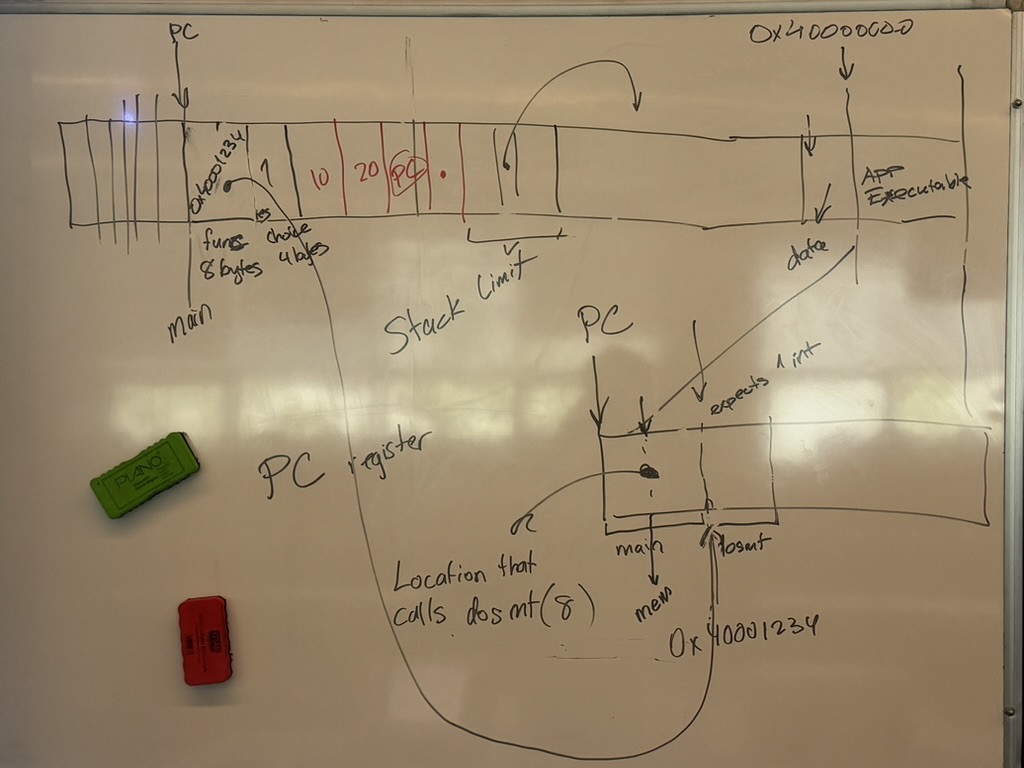 PC
0x40000000
0x40001234
10
20
PC
APP
Executable
func
8 bytes
choice
4 bytes
main
Stack Limit
data
PC
expects 1 int
PLANO
PC register
main
dosmt
Location that
calls dosmt(8)
mem
0x40001234